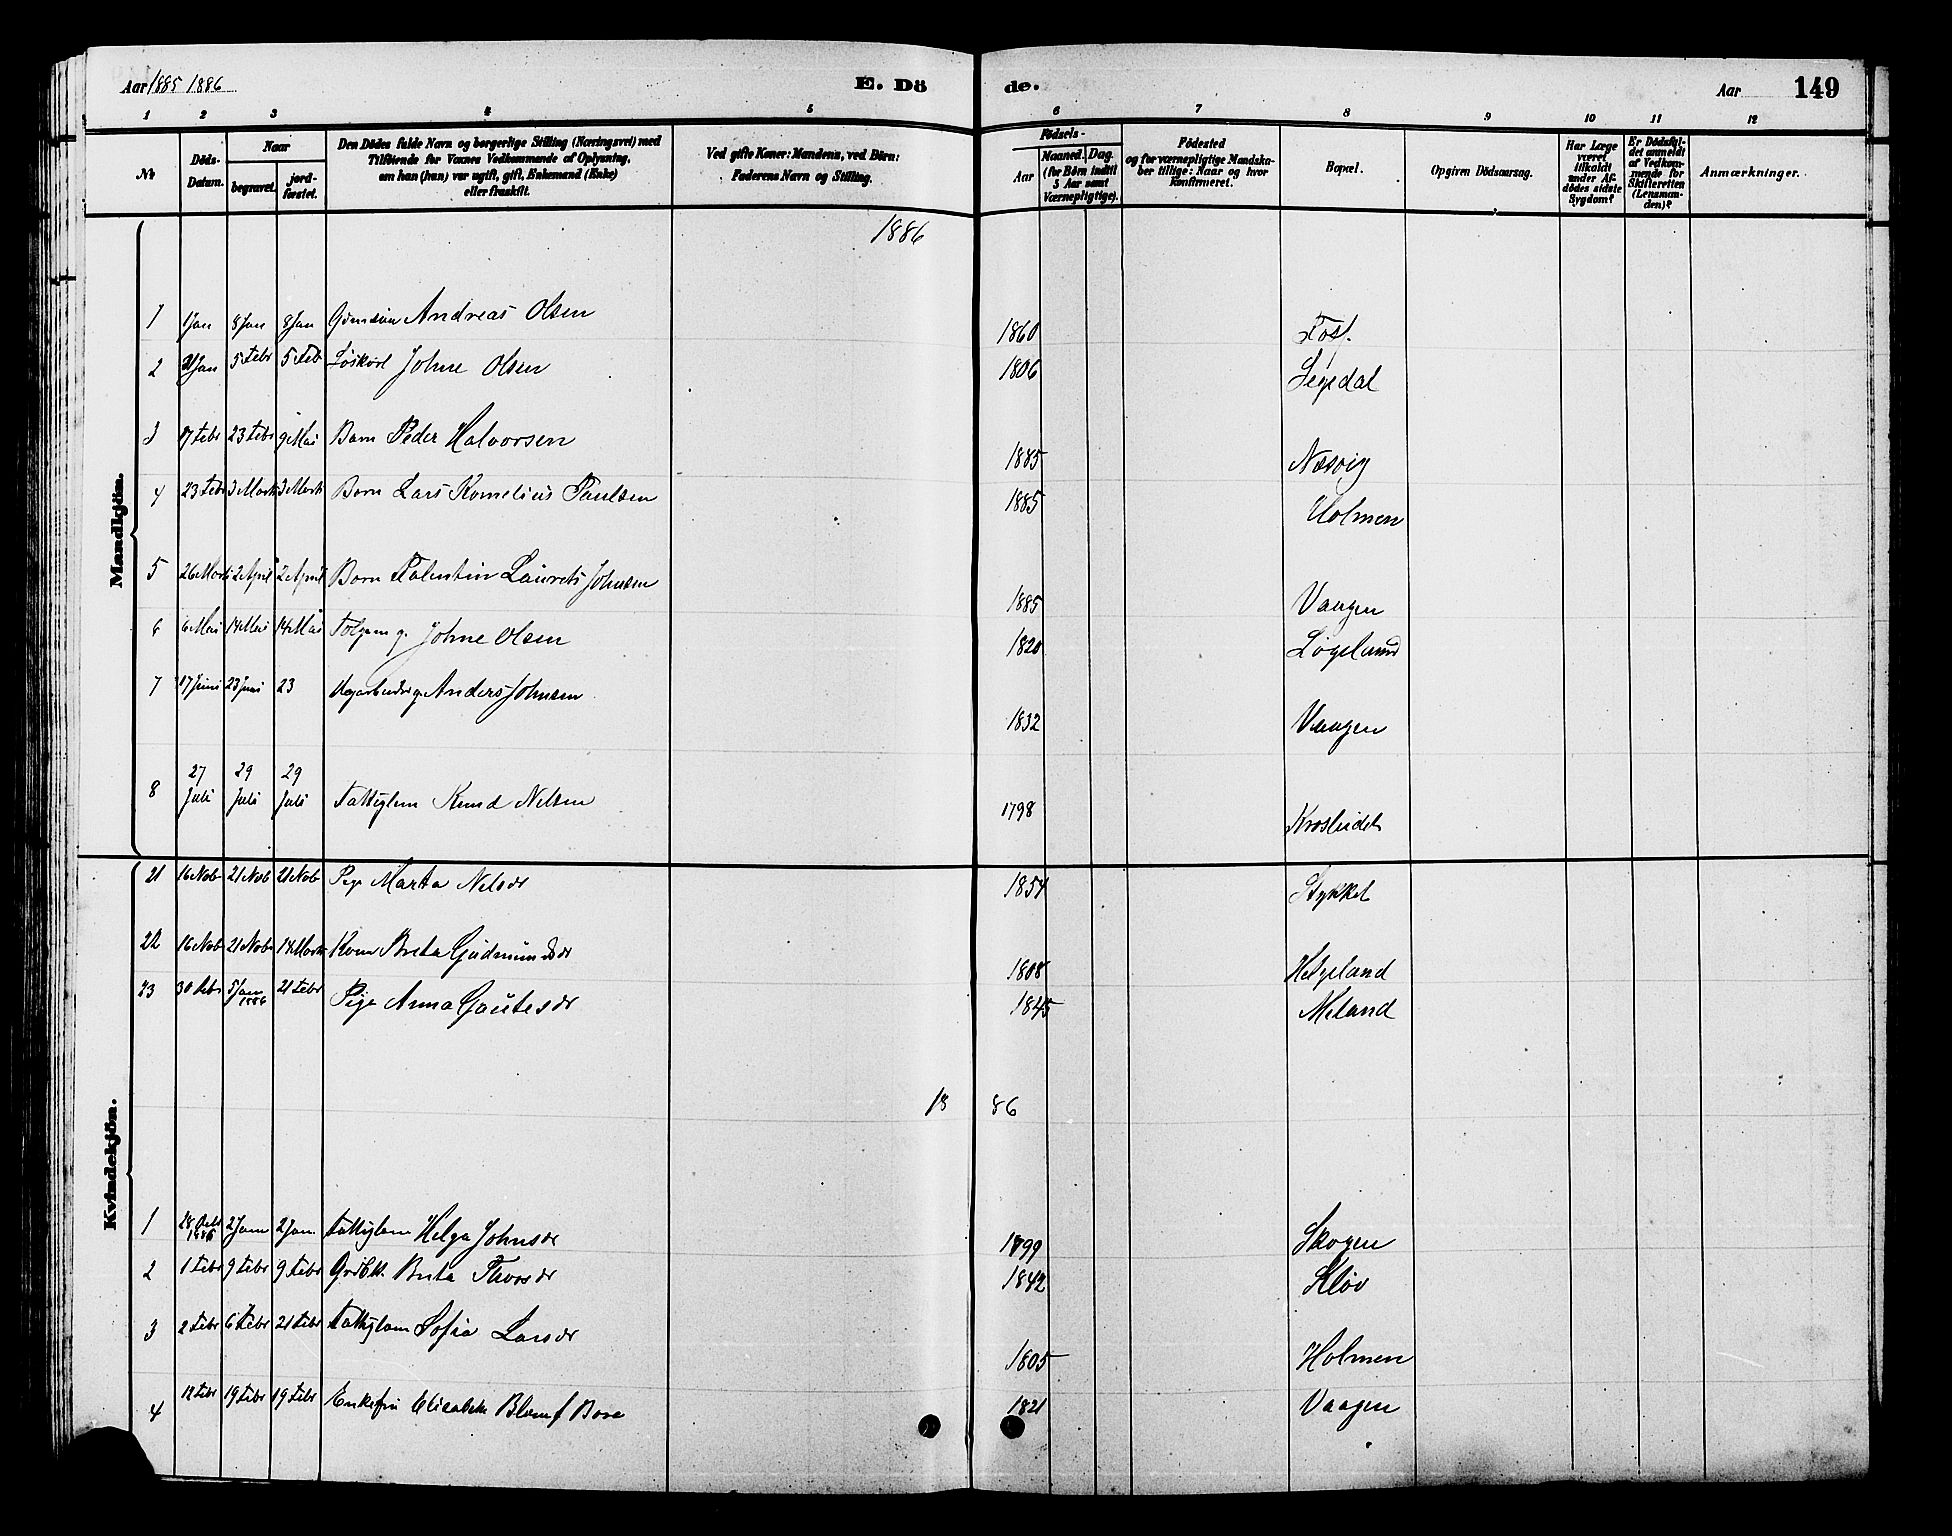 Aar 1885 1886 E. Dö de. Aar 149
1 2 3 4 5 6 7 8 9 10 11 12
No Döds-Datum. Naar begravet. jord-fæstet. Den Dödes fulde Navn og borgerlige Stilling (Næringsvei) med Tilföiende for Voxnes Vedkommende af Oplysning, om han (hun) var ugift, gift, Enkemand (Enke) eller fraskilt. Ved gifte Koner: Mandens, ved Börn: Faderens Navn og Stilling. Födsels- Aar Maaned. Dag. (for Börn indtil 5 Aar samt Værnepligtige). Födested og for værnepligtige Mandskaber tillige: Naar og hvor Konfirmeret. Bopæl. Opgiven Dödsaarsag. Har Læge været tilkaldt under Afdödes sidste Sygdom? Er Dödsfaldet anmeldt af Vedkommende for Skifteretten (Lensmanden)? Anmærkninger.
Mandkjön.
1886
1 1 Jan 8 Jan 8 Jan Andreas Olsen 1860
2 31 Jan 5 Febr 5 Feb Johne Olsen 1806 Segedal
3 17 Febr 23 Febr 9 Mai Barn Peder Halvorsen 1885 Næsvig
4 23 Febr 3 Marts 3 Marts Barn Lars Kornelius Paulsen 1885 Holmen
5 26 Marts 2 April 2 April Barn Laurits Johnsen 1885 Vaagen
6 6 Mai 14 Mai 14 Mai g. Johne Olsen 1820 Løgelund
7 17 Juni 23 Juni 23 g. Anders Johnsen 1832 Vaagen
8 27 Juli 29 Juli 29 Juli Fattiglem Knud Nelsen 1798
Kvindekjön.
21 16 Nob 21 Nob 21 Nob Pige Marta Nelsdr 1854 Stykket
22 16 Nob 21 Nob 14 Marts Kone Breta Gudmundsdr 1808 Helgeland
23 30 Debr 5 Jan 1886 21 Febr Pige Anna Gautesdr 1845 Meland
18 86
1 2 Jan 2 Jan. Fattiglem Helga Johnsdr 1799 Skogen
2 1 Febr 9 Febr 9 Febr Breta Thorsdr 1842 Kløv
3 2 Febr 6 Febr 21 Febr Fattiglem Sofia Larsdr 1805 Holmen
4 12 Febr 19 Febr 19 Febr Enkefru Elisabeth Bore 1821 Vaagen